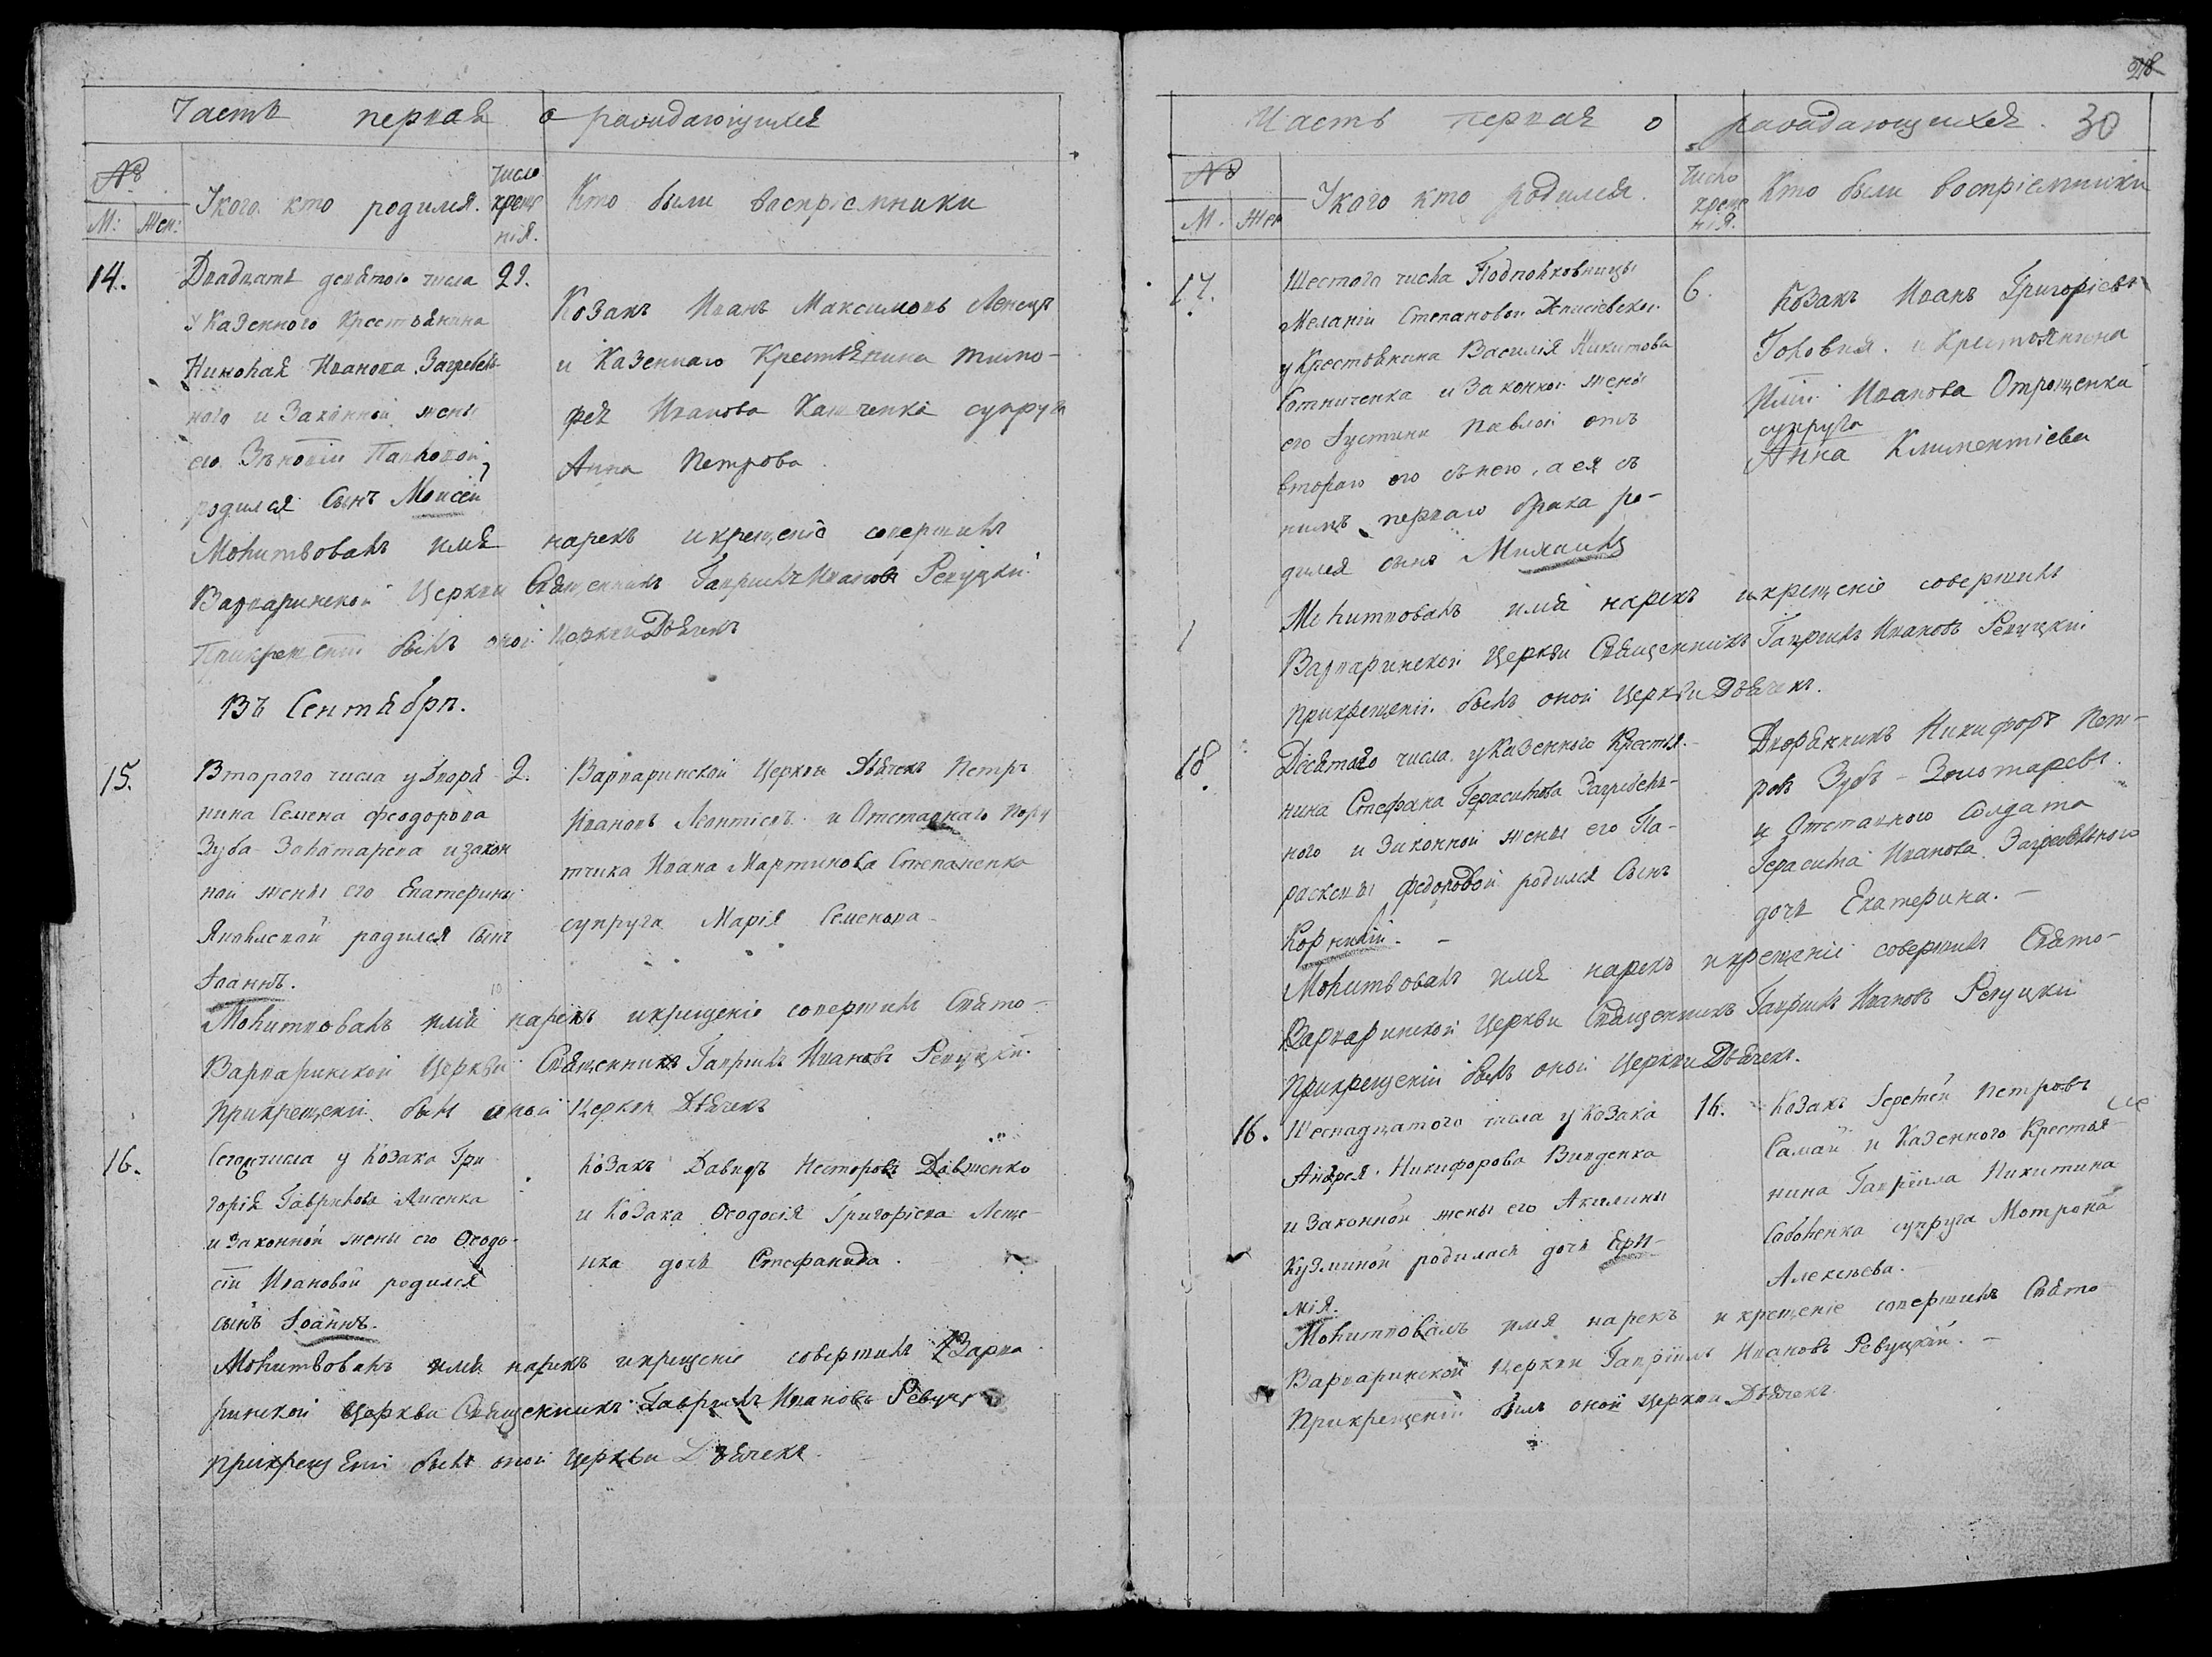 Часть первая о раждающихся
№
М: Жен:
У кого кто родился.
Число
креще
нія.
Кто были воспріемники
14.
Двадцать девятого числа
у Казенного Крестьянина
Николая Иванова Загребель
ного и Законной жены
его Зѣновіи Павловой
родился Сынъ Моисей
29.
Козакъ Иванъ Максимовъ
и Казеннаго Крестьянина Тимо-
фея Иванова супруга
Анна Петрова
Молитвовалъ имя нарекъ и крещеніе совершилъ
Варваринской Церкви Священникъ Гаврилъ Ивановъ Ревуцкій
При крещеніи былъ оной Церкви Дьячекъ
Въ Сентябрѣ.
15.
Втораго числа у Дворя
нина Семена Феодорова
Зуба-Золотарева и закон
ной жены его Екатерины
Яковлевой родился Сынъ
Іоаннъ.
2.
Варваринской Церкви Дьячекъ Петръ
Ивановъ Леонтіевъ и Отставнаго Пору
тчика Ивана Мартинова Степаненка
супруга Марія Семенова
Молитвовалъ имя нарекъ и крещеніе совершилъ Свято-
Варваринской Церкви Священникъ Гаврилъ Ивановъ Ревуцкій.
При крещеніи былъ оной Церкви Дьячекъ
16.
числа у Козака Гри
горія Гаврилова Лисенка
и Законной жены его Феодо-
сіи Ивановой родился
сынъ Іоаннъ.
Козакъ Давидъ Несторовъ
и Козака Феодосія Григоріева
дочь Стефанида.
Молитвовалъ имя нарекъ и крещеніе совершилъ Варва
ринской Церкви Священникъ Гаврилъ Ивановъ Ревуц
При крещеніи былъ оной Церкви Дьячекъ.
28
Часть первая о раждающихся. 30
№
М. Жен
У кого кто родился.
Число
креще
нія.
Кто были воспріемники
17.
Шестого числа Подполковницы
Меланіи Степановой
у Крестьянина Василія Никитова
Сотниченка и Законной жены
его Іустины Павлой отъ
втораго его съ нею, а ея съ
нимъ перваго брака ро-
дился сынъ Михаилъ
6.
Козакъ Иванъ Григоріевъ
Головня. и Крестьянина
Иванова Отрощенка
супруга
Анна Климентіева
Молитвовалъ имя нарекъ и крещеніе совершилъ
Варваринской Церкви Священникъ Гаврилъ Ивановъ Ревуцкій
При крещеніи былъ оной Церкви Дьячекъ.
18.
Десятого числа у Казенного Крестья-
нина Стефана Герасимова Загребель-
ного и Законной жены его Па-
раскевы Федоровой родился Сынъ
Корнилій.
Дворянинъ Никифоръ Пет-
ровъ Зубъ-Золотаревъ.
и Отставного Солдата
Герасима Иванова Загребельного
дочь Екатерина.
Молитвовалъ имя нарекъ и крещеніе совершилъ Свято-
Варваринской Церкви Священникъ Гаврилъ Ивановъ Ревуцкій
При крещеніи былъ оной Церкви Дьячекъ.
16.
Шеснадцатого числа у Козака
Андрея Никифорова
и Законной жены его Акилины
Кузминой родилась дочь Ери-
мія.
16.
Козакъ Іеремей Петровъ
Самай и Казенного Крестья
нина Гавріила Никитина
супруга Мотрона
Алексѣева.
Молитвовалъ имя нарекъ и крещеніе совершилъ Свято
Варваринской Церкви Гавріилъ Ивановъ Ревуцкій.
При крещеніи былъ оной Церкви Дьячекъ